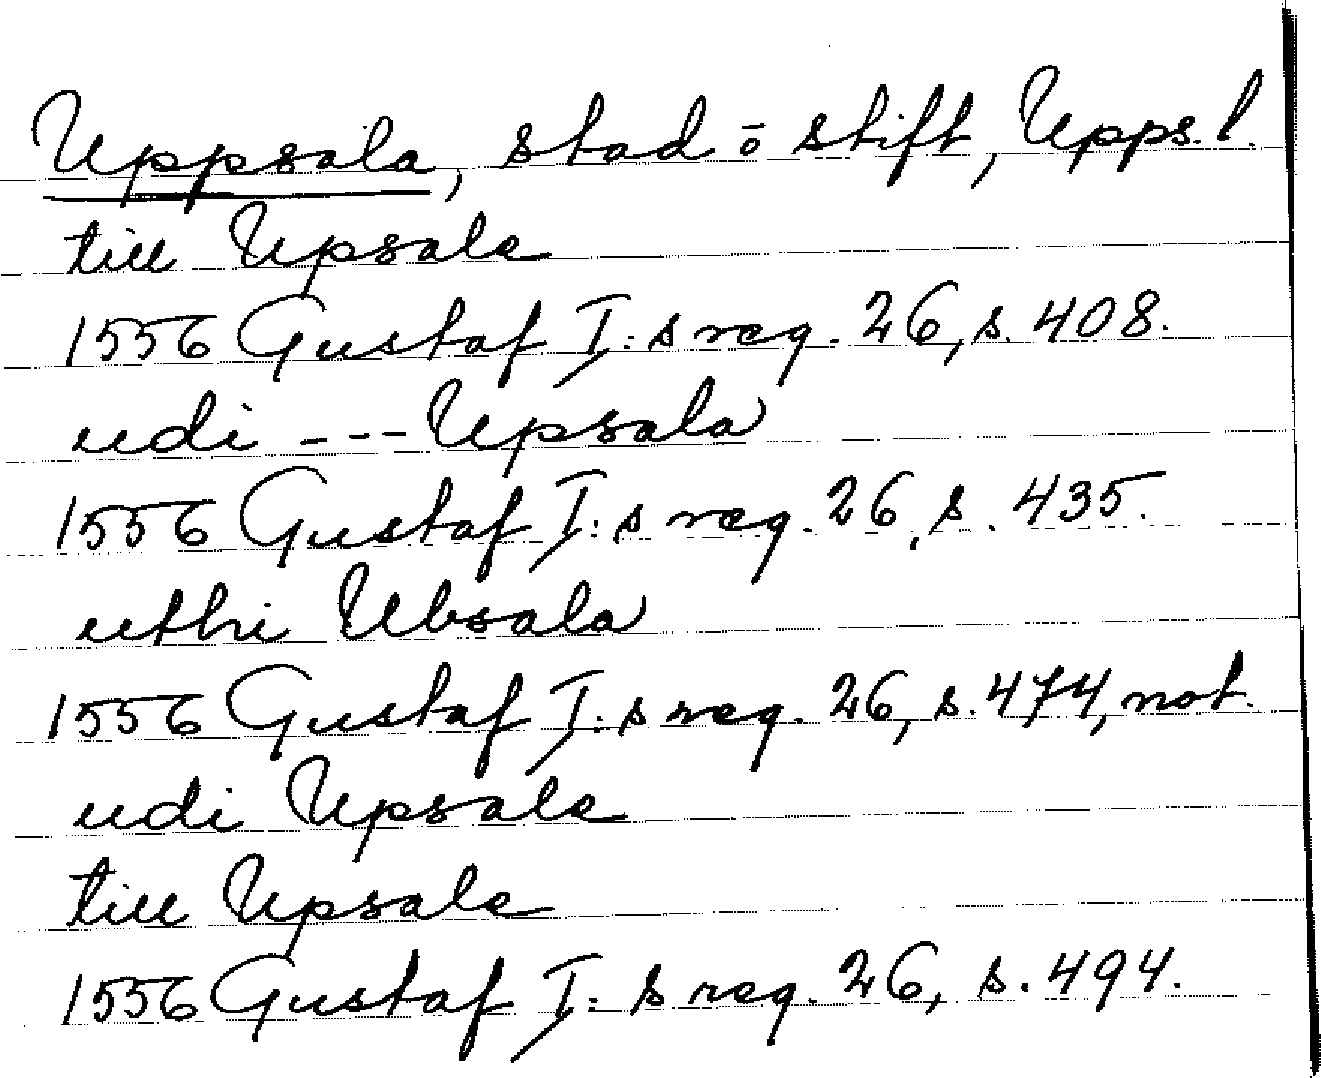 Uppsala, stad o stift, Upps. l.
till Upsale
1556 Gustaf I:s reg. 26, s. 408.
udi --- Upsala
1556 Gustaf I:s reg. 26, s. 435.
uthi Ubsala
1556 Gustaf I:s reg. 26, s. 474, not.
udi Upsale
till Upsale
1556 Gustaf I:s reg. 26, s. 494.